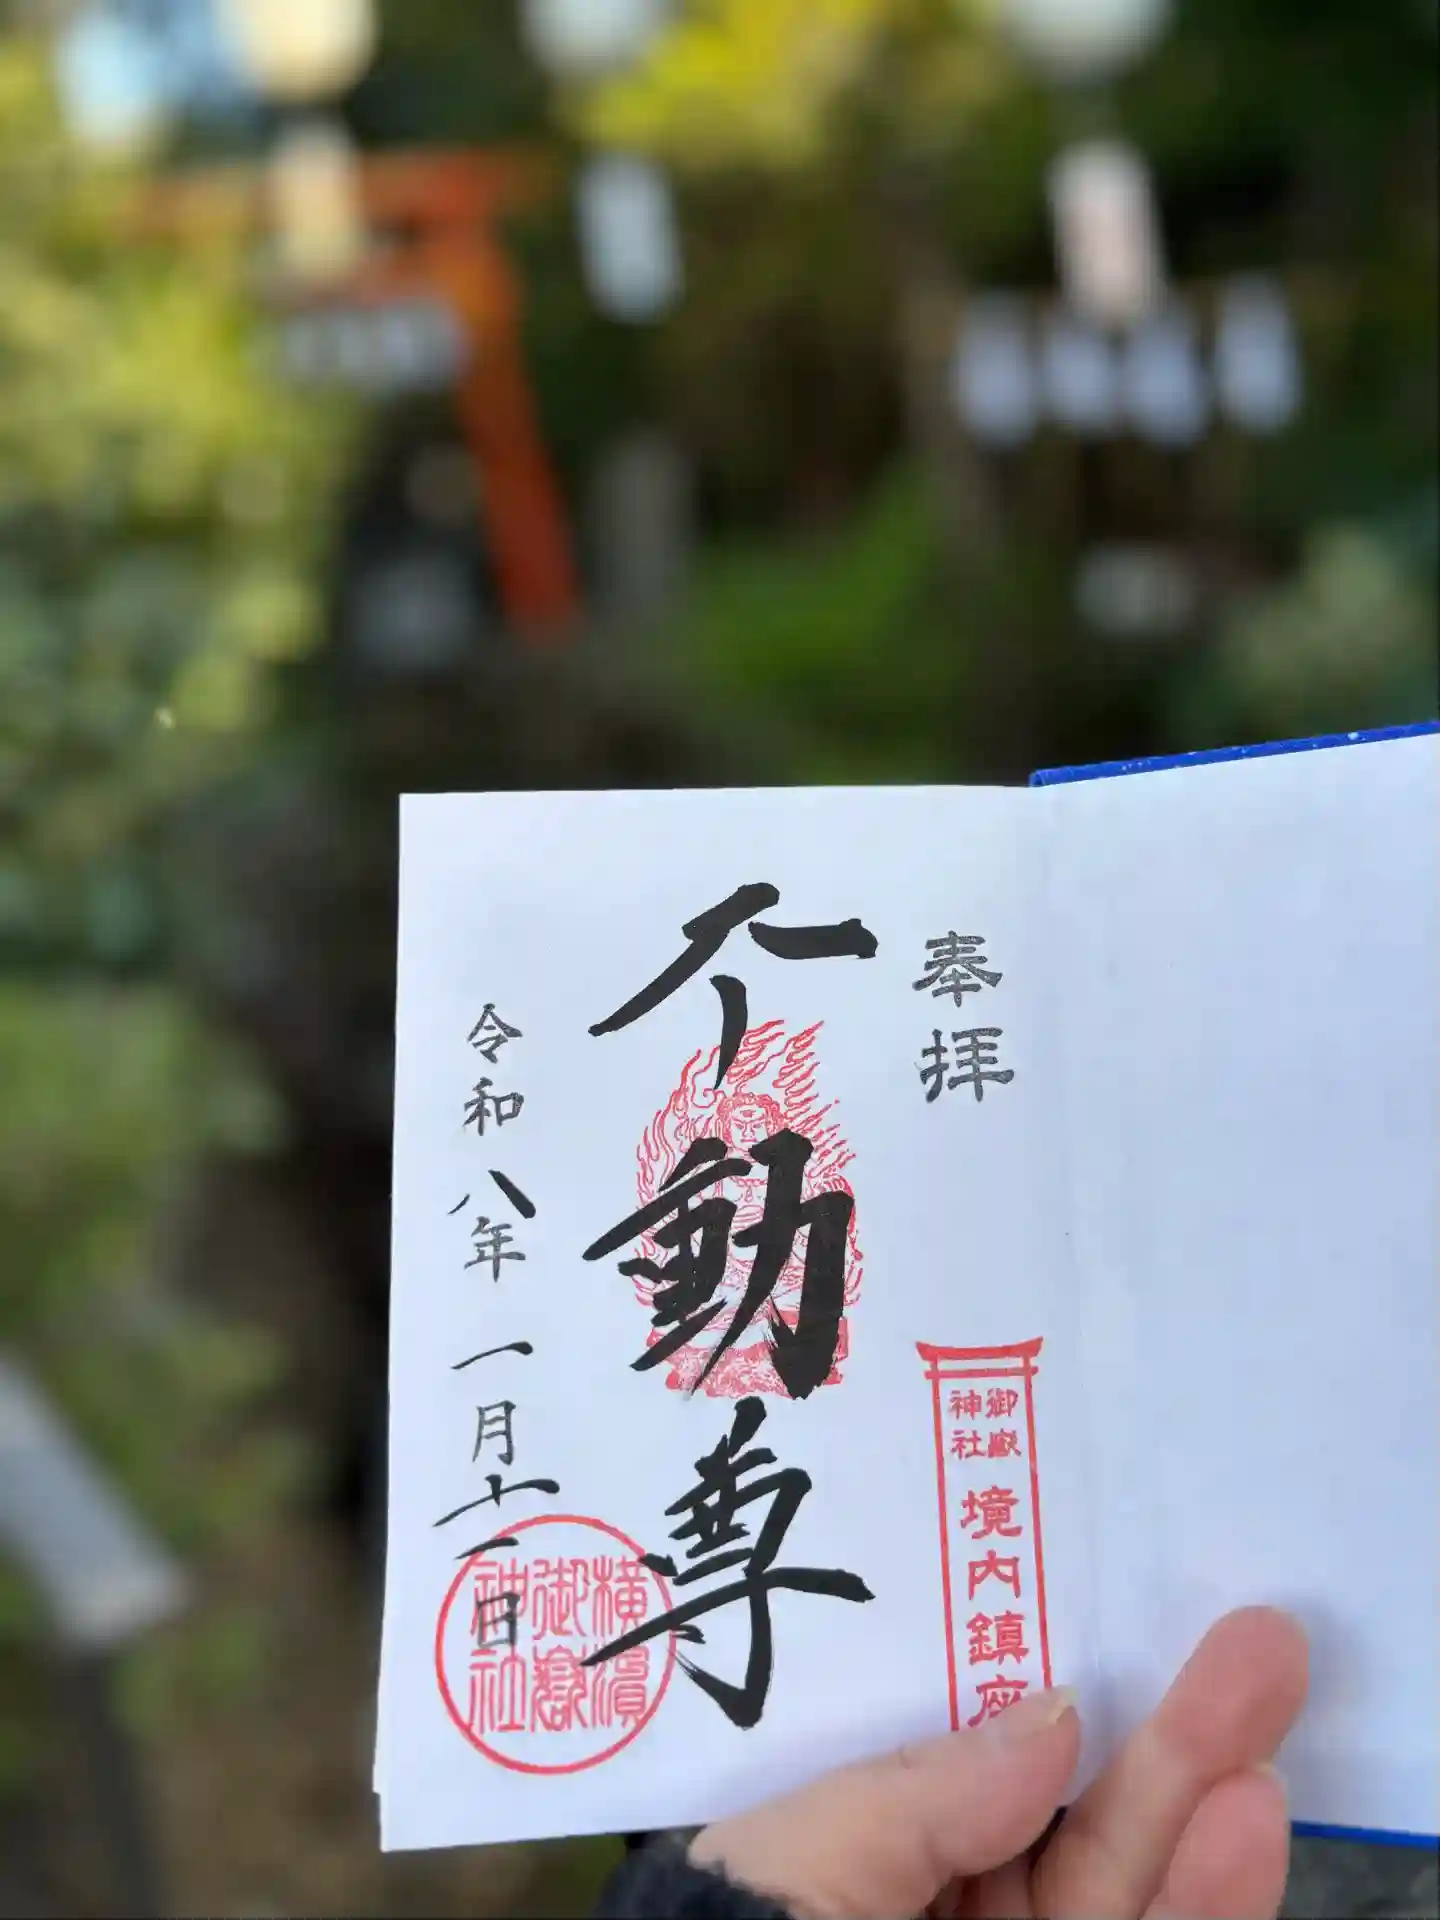 奉拝
御嶽
神社
境内鎮座
不動尊
令和八年一月十一日
横濱
御嶽
神社